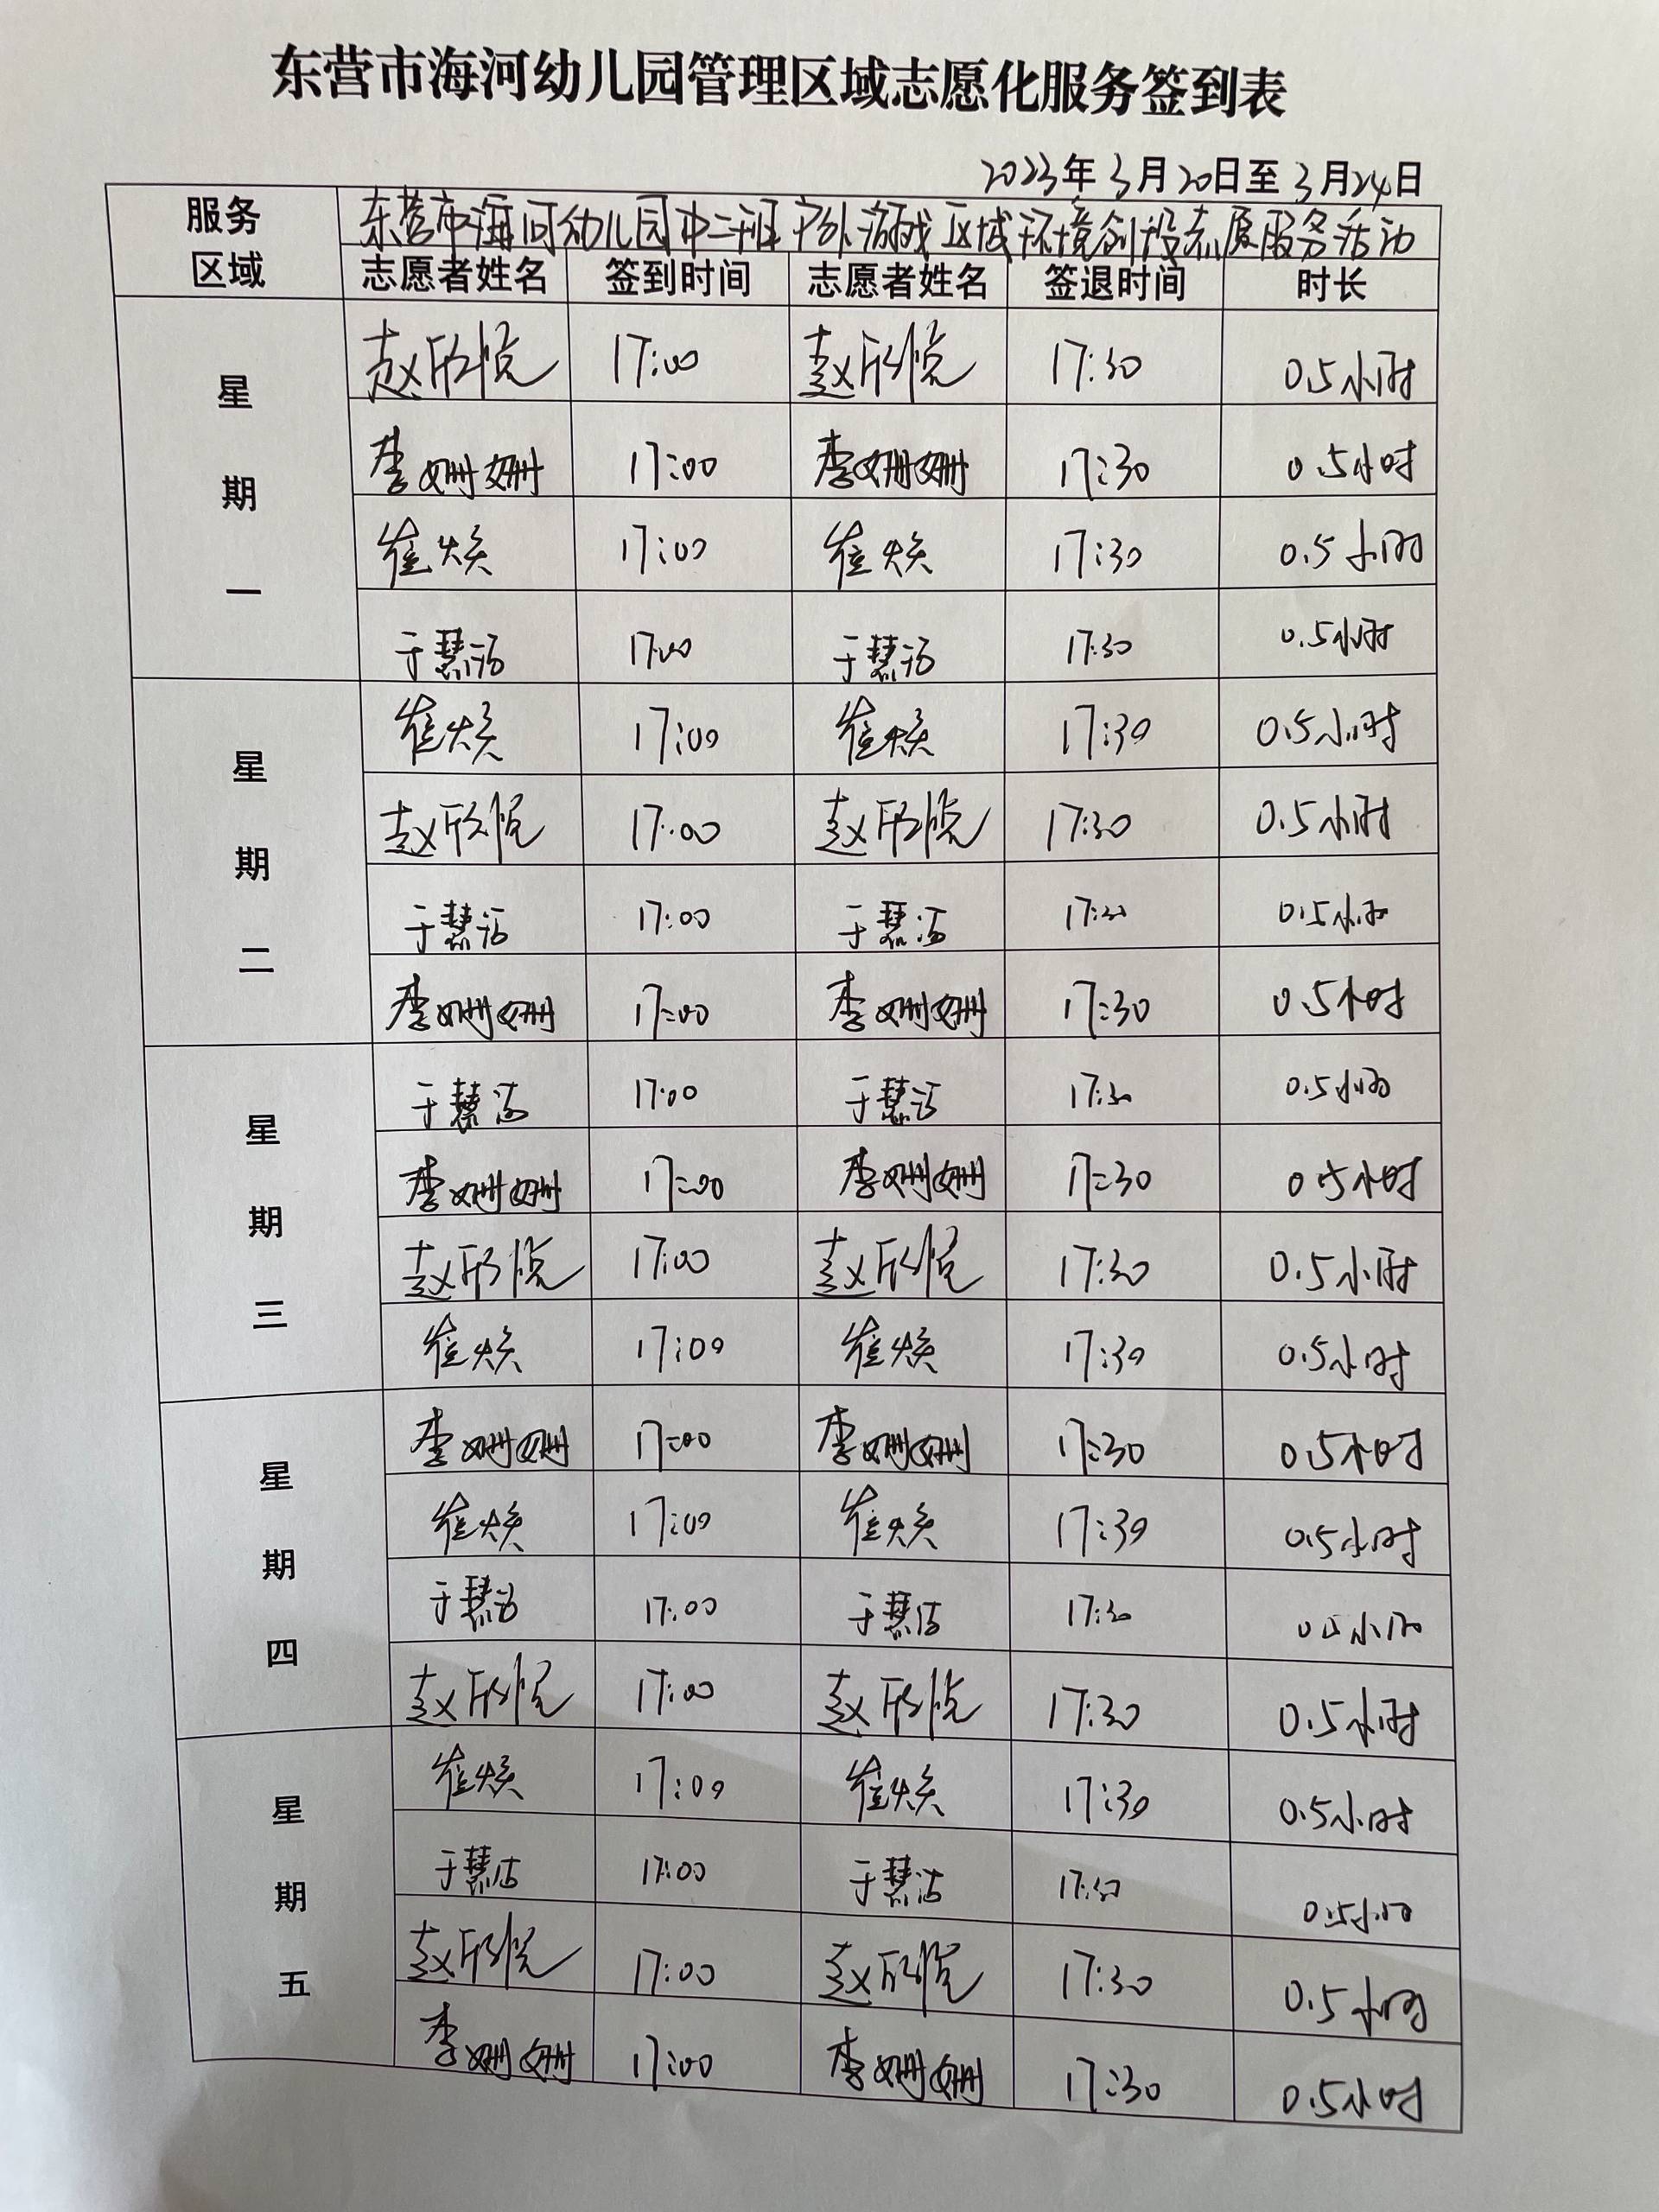 东营市海河幼儿园管理区域志愿化服务签到表
2023年3月20日至3月24日
服务区域 东营市海河幼儿园中二班户外游戏区域环境创设志愿服务活动
志愿者姓名 签到时间 志愿者姓名 签退时间 时长
星期一
赵欣悦 17:00 赵欣悦 17:30 0.5小时
李姗姗 17:00 李姗姗 17:30 0.5小时
崔焕 17:00 崔焕 17:30 0.5小时
于慧洁 17:00 于慧洁 17:30 0.5小时
星期二
崔焕 17:00 崔焕 17:30 0.5小时
赵欣悦 17:00 赵欣悦 17:30 0.5小时
于慧洁 17:00 于慧洁 17:30 0.5小时
李姗姗 17:00 李姗姗 17:30 0.5小时
星期三
于慧洁 17:00 于慧洁 17:30 0.5小时
李姗姗 17:00 李姗姗 17:30 0.5小时
赵欣悦 17:00 赵欣悦 17:30 0.5小时
崔焕 17:00 崔焕 17:30 0.5小时
星期四
李姗姗 17:00 李姗姗 17:30 0.5小时
崔焕 17:00 崔焕 17:30 0.5小时
于慧洁 17:00 于慧洁 17:30 0.5小时
赵欣悦 17:00 赵欣悦 17:30 0.5小时
星期五
崔焕 17:00 崔焕 17:30 0.5小时
于慧洁 17:00 于慧洁 17:30 0.5小时
赵欣悦 17:00 赵欣悦 17:30 0.5小时
李姗姗 17:00 李姗姗 17:30 0.5小时